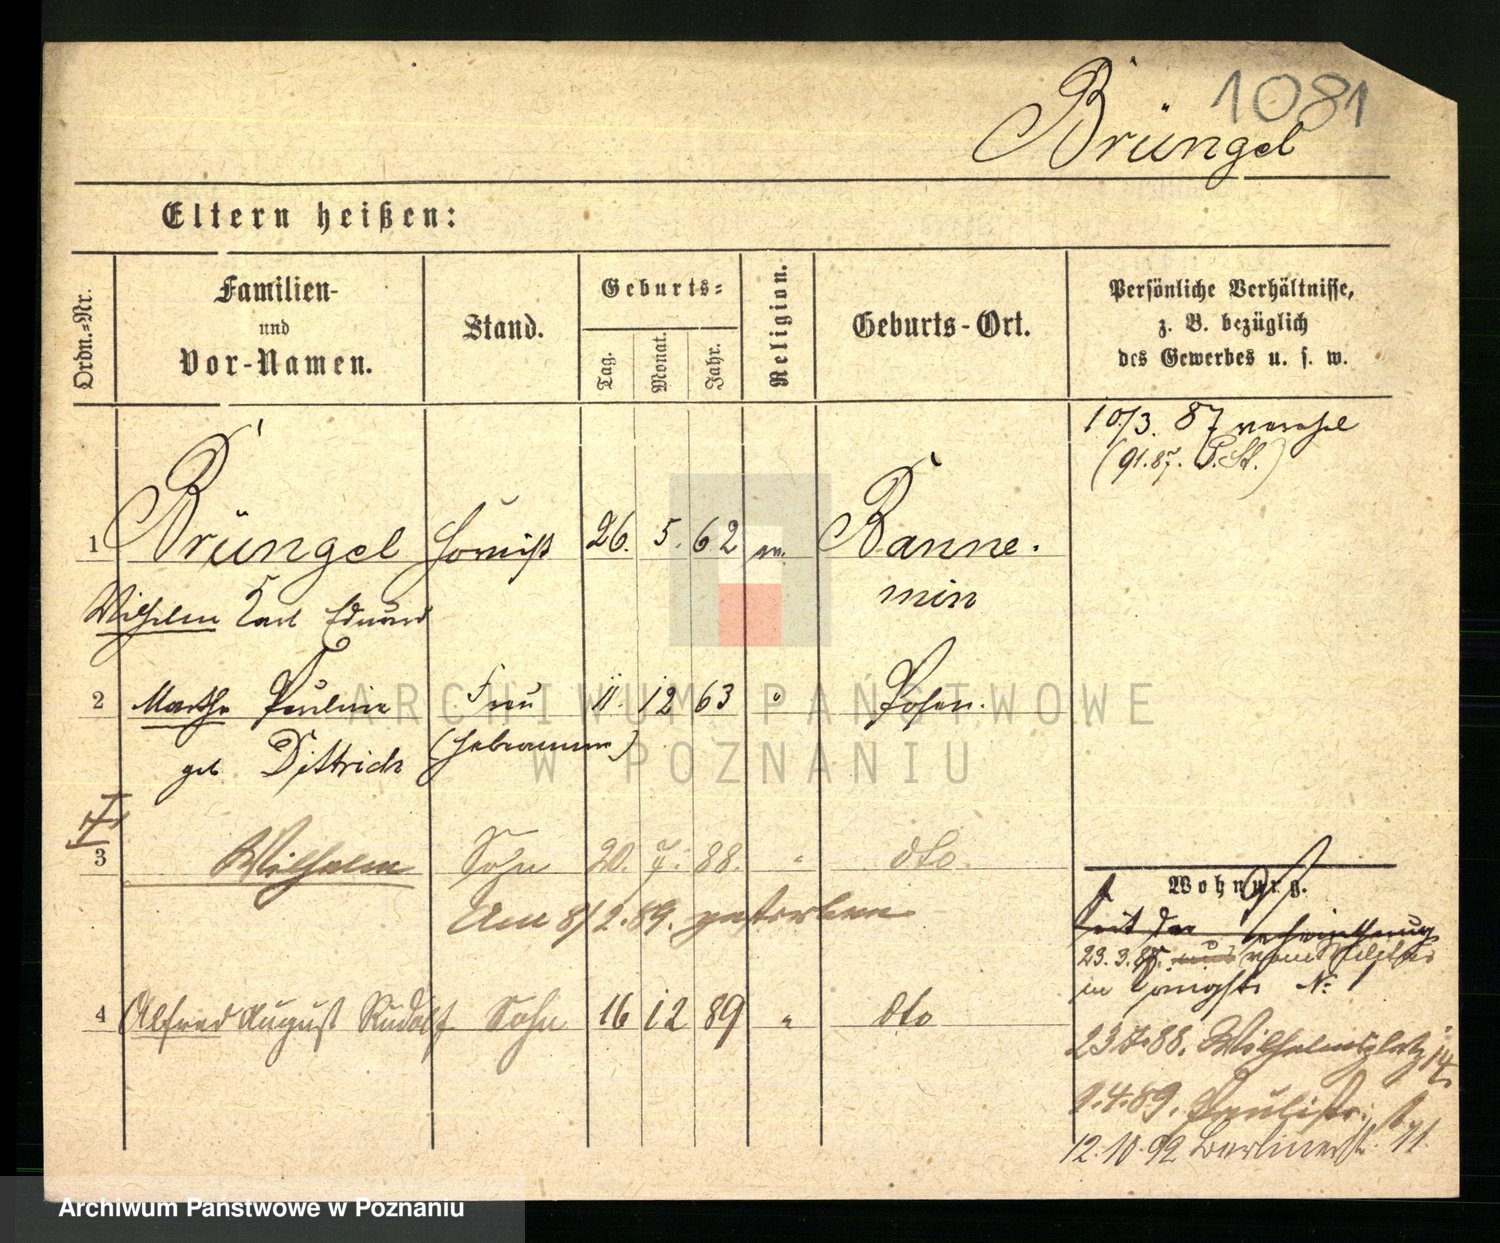 1081
Brüngel
Eltern heißen:
Ordn.-Nr.
Familien-
und
Vor-Namen.
Stand.
Geburts-
Tag.
Monat.
Jahr.
Religion.
Geburts-Ort.
Persönliche Verhältnisse,
z. B. bezüglich
des Gewerbes u. s. w.
10/3. 87
(91.87. P.St.)
1 Brüngel 26. 5. 62 ev. Banne-
min
Wilhelm Karl Eduard
2 Marthe Pauline Frau 11. 12 63 " Posen.
geb Dittrich (Hebamme)
3 Wilhelm Sohn 20. 7. 88. " dto.
Am 8/2.89. gestorben
4 Alfred August Rudolf Sohn 16 12 89 " dto
Wohnung.
Seit der
23.3.87. vom Militär
in N: 1
23.7.88. Wilhelmsplatz 14
1.4.89. Paulistr.
12.10.92 Berlinerstr. 11.
ARCHIWUM PAŃSTWOWE
W POZNANIU
Archiwum Państwowe w Poznaniu